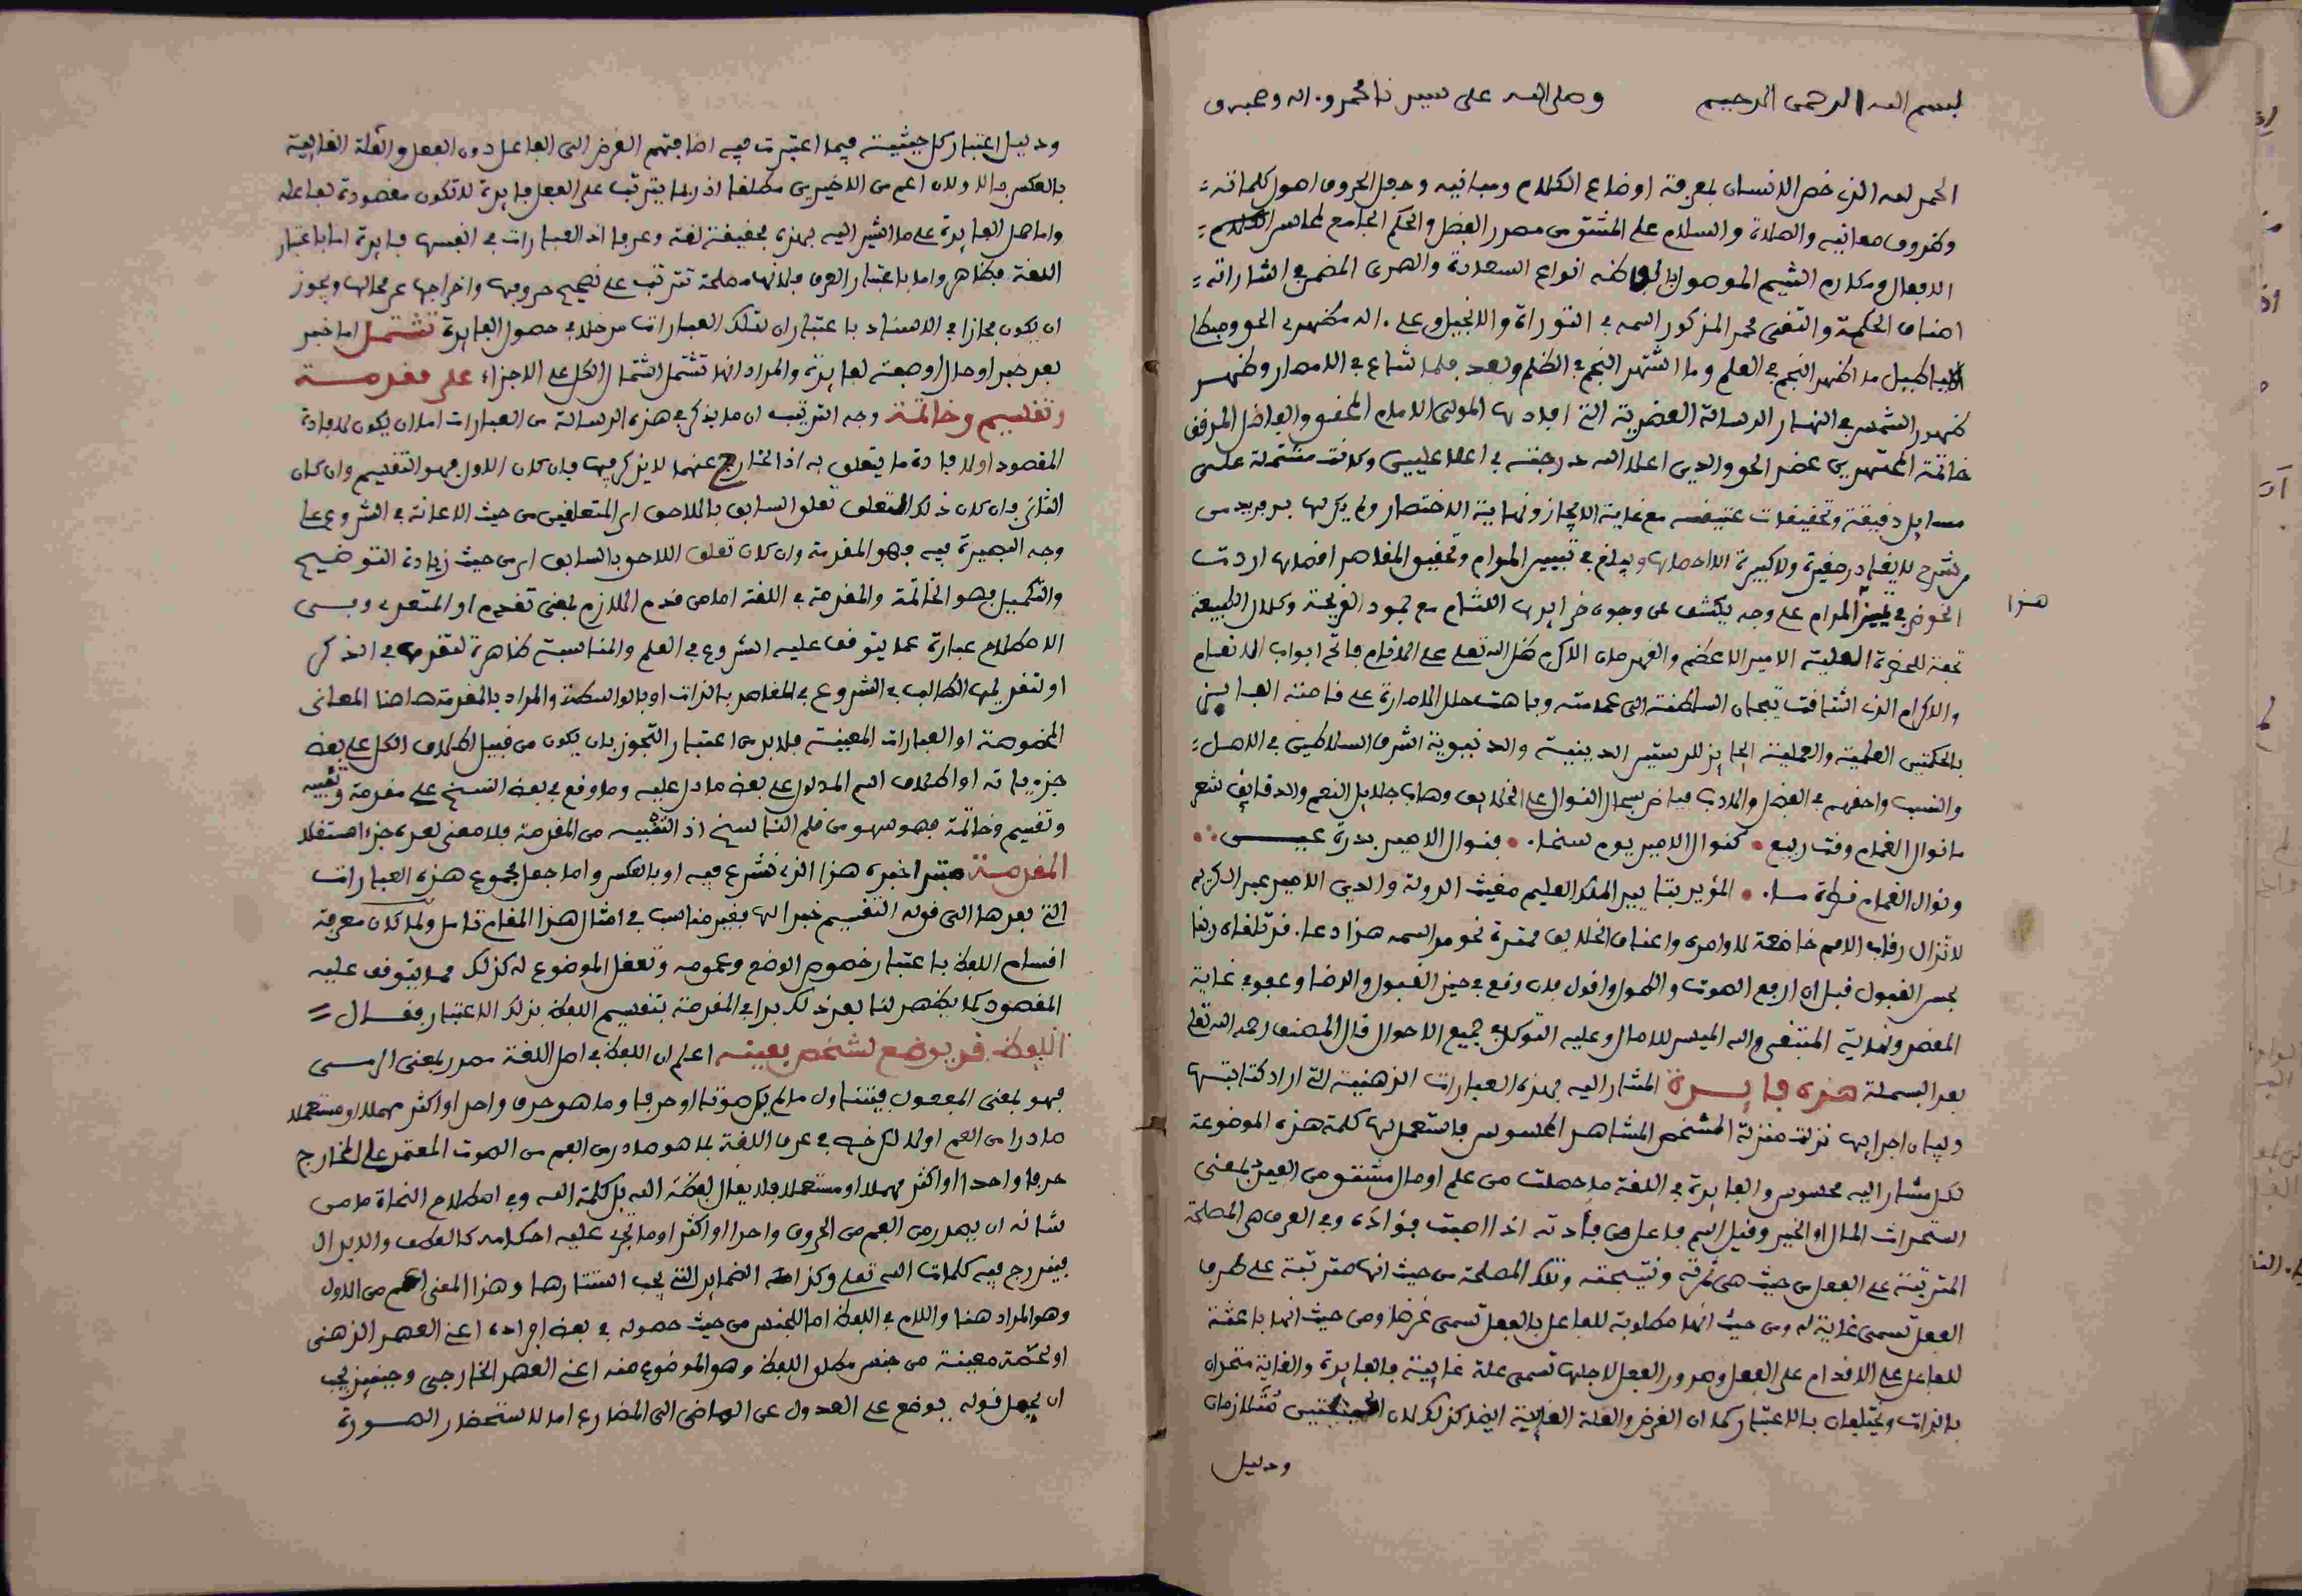 بسم الله الرحمن الرحيم وصلى الله على سيدنا محمد وءاله وصحبه و
الحمد لله الذي خص الانسان بمعرفة اوضاع الكلام ومبانيه وجعل الحروف اصول كلماته
وظروف معانيه والصلاة والسلام على المشتق من مصدر الفضل والحكم الجامع لمحاسن
الافعال ومكارم الشيم الموصول بالطافه انواع السعادة والهدى المضمر في اشاراته
اصناف الحكمة والتقى محمد المذكور اسمه في التوراة والانجيل وعلى ءاله مظهري الحق ومبطلي
الاباطيل ما اظهر النجم في العلم وما اشتهر النجم في الظلم وبعد فلما شاع في الامصار وظهر
ظهور الشمس في النهار الرسالة العضدية التي افادها المولى الامام المحقق والفاضل المدقق
خاتمة المجتهدين عضد الحق والدين اعلا الله درجته في اعلا عليين وكانت مشتملة على
مسايل دقيقة وتحقيقات عتيقة مع غاية الايجاز ونهاية الاختصار ولم يكن لها بد من
شرح لا يغادر صغيرة ولا كبيرة الا احصاها ويبلغ في تبيين المرام وتحقيق المقام اقصاها اردت
هذا
الخوض في تميز المرام على وجه يكشف عن وجوه خرايدها اللثام مع جمود القريحة وكلال الطبيعة
تحفة للحضرة العلية الامير الاعظم والقهرمان الاكرم ظل الله تعلى على الانام فاتح ابواب الانعام
والاكرام الذي اشتاقت تيجان السلطنة الى هامته وباهت حلل الامارة على قامته الفايز
بالحكمتين العلمية والعملية الحايز للرياستين الدينية والدنيوية اشرف السلاطين في الاصل
والنسب واحقهم في الفضل والادب فياض سجال النوال على الخلايق وهاب جلايل النعم والدقايق شعر
ما نوال الغمام وقت ربيع كنوال الامير يوم سخاء فنوال الامير بدرة عين
ونوال الغمام قطرة ماء المؤيد بتاييد الملك العليم مغيث الدولة والدين الامير عبد الكريم
لا تزال رقاب الامم خاضعة لاوامره واعناق الخلايق ممتدة نحو مراسمه هذا دعاء قد تلقاه ربنا
بحسن القبول قبل ان ارفع الصوت واقول فان وقع في حيز القبول والرضا وعفو في غاية
المقصد ونهاية المبتغى والله الميسر للامال وعليه التوكل في جميع الاحوال قال المصنف رحمه الله تعلى
بعد البسملة هذه فايدة المشار اليه بهذه العبارات الذهنية التي اراد كتابتها
وبيان اجزايها نزلت منزلة المشخص المشاهد المحسوس فاستعمل لها كلمة هذه الموضوعة
لكل مشار اليه محسوس والفايدة في اللغة ما حصلت من علم او مال مشتق من الفيد بمعنى
استحداث المال او الخير وقيل اسم فاعل من فأدته اذا اصبت فؤاده وفي العرف هي المصلحة
المترتبة على الفعل من حيث هي ثمرته ونتيجته وتلك المصلحة من حيث انها مترتبة على طرف
الفعل تسمى غاية له ومن حيث انها مطلوبة للفاعل بالفعل تسمى غرضا ومن حيث انها باعثة
للفاعل على الاقدام على الفعل وصدور الفعل لاجلها تسمى علة غايية فالفايدة والغاية متحدان
بالذات ومختلفان بالاعتبار كما ان الغرض والعلة الغايية ايضا كذلك لان الحيثيتين متلازمان
ودليل
ودليل اعتبار كل حيثية فيما اعتبرت فيه اضافتهم الغرض الى الفاعل دون الفعل والعلة الغايية
بالعكس فالاولان اعم من الاخيرين مطلقا اذ ربما يترتب على الفعل فايدة لا تكون مقصودة لفاعله
واما حمل الفايدة على ما اشير اليه بهذه بحقيقة لغة وعرفا اذ العبارات في انفسها فايدة اما باعتبار
اللغة فظاهر واما باعتبار العرف فلانها مصلحة تترتب على تصحيح حروفها واخراجها عن مخارجها ويجوز
ان يكون مجازا في الاسناد باعتبار ان لتلك العبارات مدخلا في حصول الفايدة تشتمل اما خبر
بعد خبر او حال او صفة لفايدة والمراد انها تشتمل اشتمال الكل على الاجزاء على مقدمة
وتقسيم وخاتمة وجه الترتيب ان ما يذكر في هذه الرسالة من العبارات اما ان يكون لافادة
المقصود او لافادة ما يتعلق به اذ الخارج عنهما لا يذكر فيها فان كان الاول فهو التقسيم وان كان
الثاني فان كان ذلك التعلق تعلق السابق باللاحق اي المتعلقين من حيث الاعانة في الشروع على
وجه البصيرة فيه فهو المقدمة وان كان تعلق اللاحق بالسابق اي من حيث زيادة التوضيح
والتكميل فهو الخاتمة والمقدمة في اللغة اما من قدم اللازم بمعنى تقدم او المتعدي وفي
الاصطلاح عبارة عما يتوقف عليه الشروع في العلم والمناسبة ظاهرة لتقدمها في الذكر
او لتقديمها الطالب في الشروع في المقاصد بالذات او بالواسطة والمراد بالمقدمة هاهنا المعاني
المخصوصة او العبارات المعينة فلا بد من اعتبار التجوز بان يكون من قبيل اطلاق الكل على بعض
جزيياته او اطلاق اسم المدلول على بعض ما دل عليه وما وقع في بعض النسخ على مقدمة وتنبيه
وتقسيم وخاتمة فهو سهو من قلم الناسخ اذ التنبيه من المقدمة فلا معنى لعده جزءا مستقلا
المقدمة مبتدا خبره هذا الذي نشرع فيه او بالعكس واما جعل مجموع هذه العبارات
التي بعدها الى قوله التقسيم خبرا لها فغير مناسب في امثال هذا المقام تامل ولما كان معرفة
اقسام اللفظ باعتبار خصوص الوضع وعمومه وتعقل الموضوع له كذلك مما يتوقف عليه
المقصود كما يظهر لنا بعد ذلك بدا في المقدمة بتقسيم اللفظ بذلك الاعتبار فقال
اللفظ قد يوضع لشخص بعينه اعلم ان اللفظ في اصل اللغة مصدر بمعنى الرمي
فهو بمعنى المفعول فيتناول ما لم يكن صوتا او حرفا وما هو حرف واحد او اكثر مهملا او مستعملا
صادرا من الفم او لا لكن خص في عرف اللغة بما هو صادر من الفم من الصوت المعتمد على المخارج
حرفا واحدا او اكثر مهملا او مستعملا فلا يقال لفظة الله بل كلمة الله وفي اصطلاح النحاة ما من
شانه ان يصدر من الفم من الحروف واحدا او اكثر او ما تجري عليه احكامه كالعطف والابدال
فيندرج فيه كلمات الله تعلى وكذا الضماير التي يجب استتارها وهذا المعنى اعم من الاول
وهو المراد هنا واللام في اللفظ اما للجنس من حيث حصوله في بعض افراده اعني العهد الذهني
او لحصة معينة من جنس مطلق اللفظ وهو الموضوع منه اعني العهد الخارجي وحينيذ يجب
ان يحمل قوله يوضع على العدول عن الماضي الى المضارع اما لاستحضار الصورة